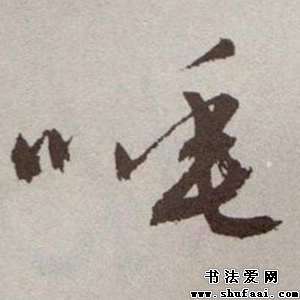 咤
书法爱网
www.shufaai.com